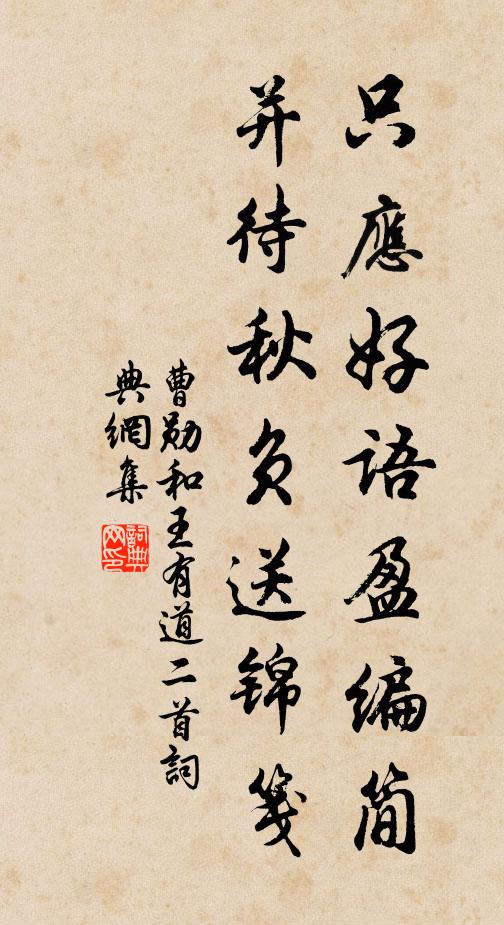 只應好語盈編简
并待秋負送錦箋
曹勛和王有道二首詞
典網集
詞典網印